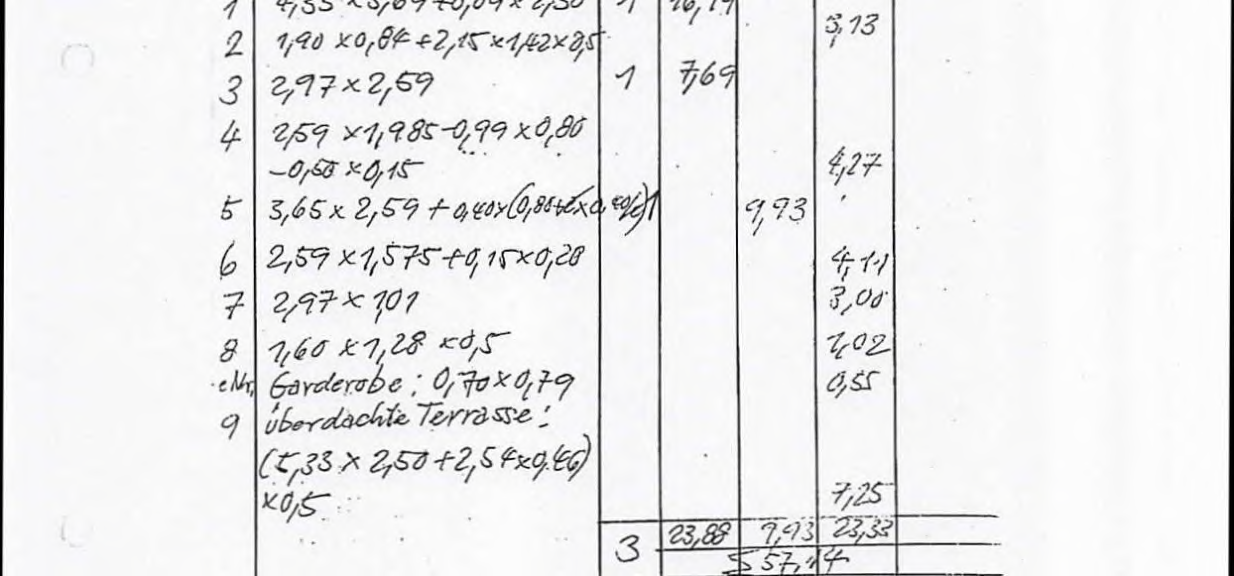 1 4,33 × 3,69 + 0,09 × 2,30 1 16,19
2 1,90 × 0,84 + 2,15 × 1,42 × 0,5 3,13
3 2,97 × 2,59 1 7,69
4 2,59 × 1,985 - 0,99 × 0,80
- 0,50 × 0,15 4,27
5 3,65 × 2,59 + 0,40 × (0,80 1 9,93
6 2,59 × 1,575 + 0,15 × 0,28 4,11
7 2,97 × 1,01 3,00
8 1,60 × 1,28 × 0,5 1,02
eNr. Garderobe: 0,70 × 0,79 0,55
9 überdachte Terrasse:
(5,33 × 2,50 + 2,54 × 0,46)
× 0,5 7,25
3 23,88 9,93 23,33
Σ 57,14